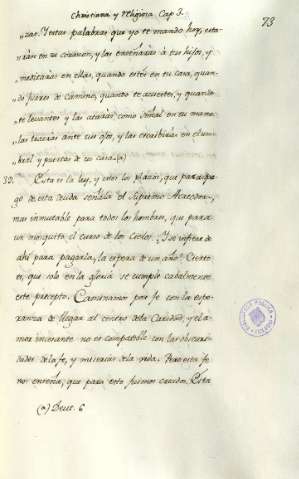 Christiana y Religiosa, Cap 3.
73
zas. Y estas palabras que yo te mando hoy, esta-
„rán en tu corazon, y las enseñarás á tus hijos, y
„meditarás en ellas, quando estés en tu casa, quan-
„do fueres de camino, quando te acuestes, y quando
„te levantes y las atarás como señal en tu mano
„las traerás ante tus ojos, y las escribirás en el um-
„bral y puertas de tu casa. (a)
Esta es la ley, y estos los plazos, que para pa-
go de esta deuda señala el Supremo Acreedor,
mas inmutable para todos los hombres, que para
un mosquito el curso de los Cielos. Y se infiere de
ahí para pagarla, la espera de un año? Cierto
es, que solo en la gloria se cumple cabalmente
este precepto. Caminamos por fe con la espe-
ranza de llegar al centro de la Caridad, y el a-
mor incesante no es compatible con las obscuri-
dades de la fe, y miserias de la vida. Pero esta fe
nos enseña, que para esto fuimos criados. Esta
(a) Deut. 6